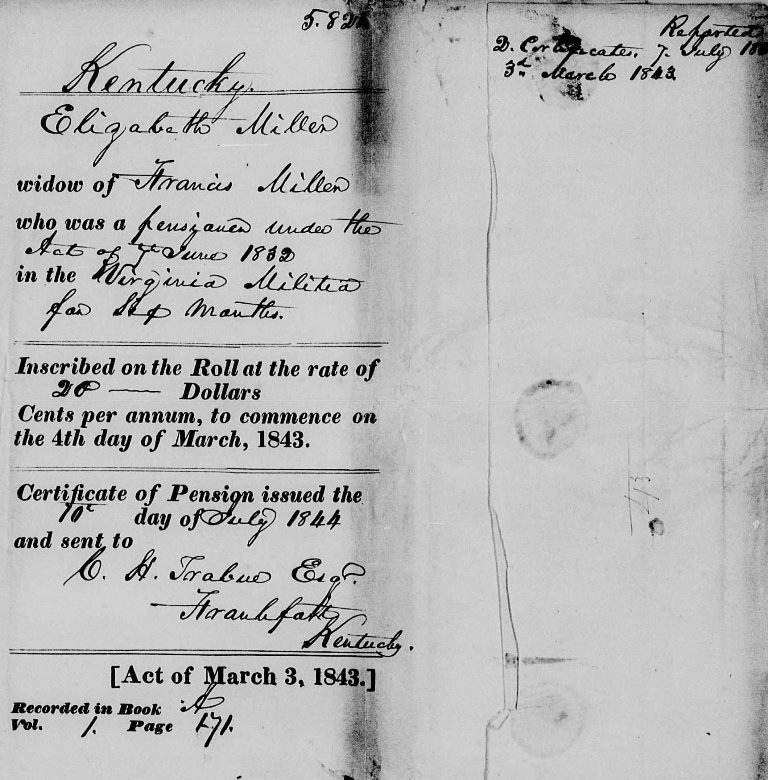 5.82
Kentucky.
Elizabeth Miller
widow of Francis Miller
who was a pensioner under the
Act of 7th June 1832
in the Virginia Militia
for Six Months.
Inscribed on the Roll at the rate of
20 — Dollars
Cents per annum, to commence on
the 4th day of March, 1843.
Certificate of Pension issued the
10th day of July 1844
and sent to
C. H. Trabue Esqr.
Frankfort
Kentucky.
[Act of March 3, 1843.]
Recorded in Book A
Vol. 1. Page 171.
Reported
D. Certificates. 7. July
3d. March 1843